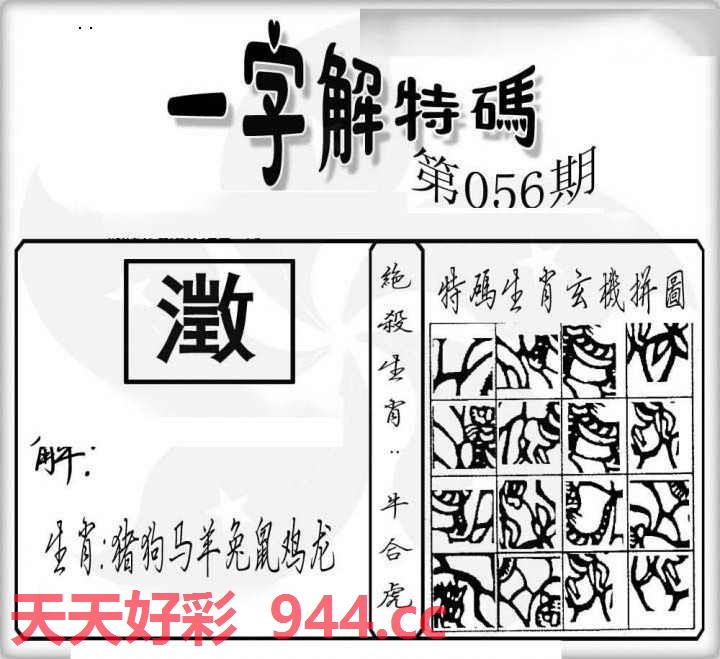 一字解特碼
第056期
澂
解:
生肖:猪狗马羊兔鼠鸡龙
絶殺生肖:牛合虎
特碼生肖玄機拼圖
天天好彩 944.cc